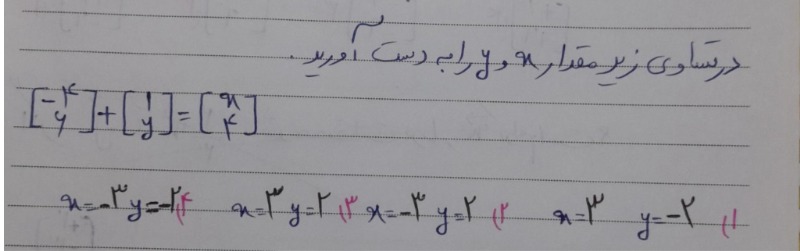 در تساوی زیر مقدار x و y را به دست آورید.
[-۴ ۶] + [۱ y] = [x ۴]
۱) x=۳ y=-۲ ۲) x=-۳ y=۲ ۳) x=۳ y=۲ ۴) x=-۳ y=-۲